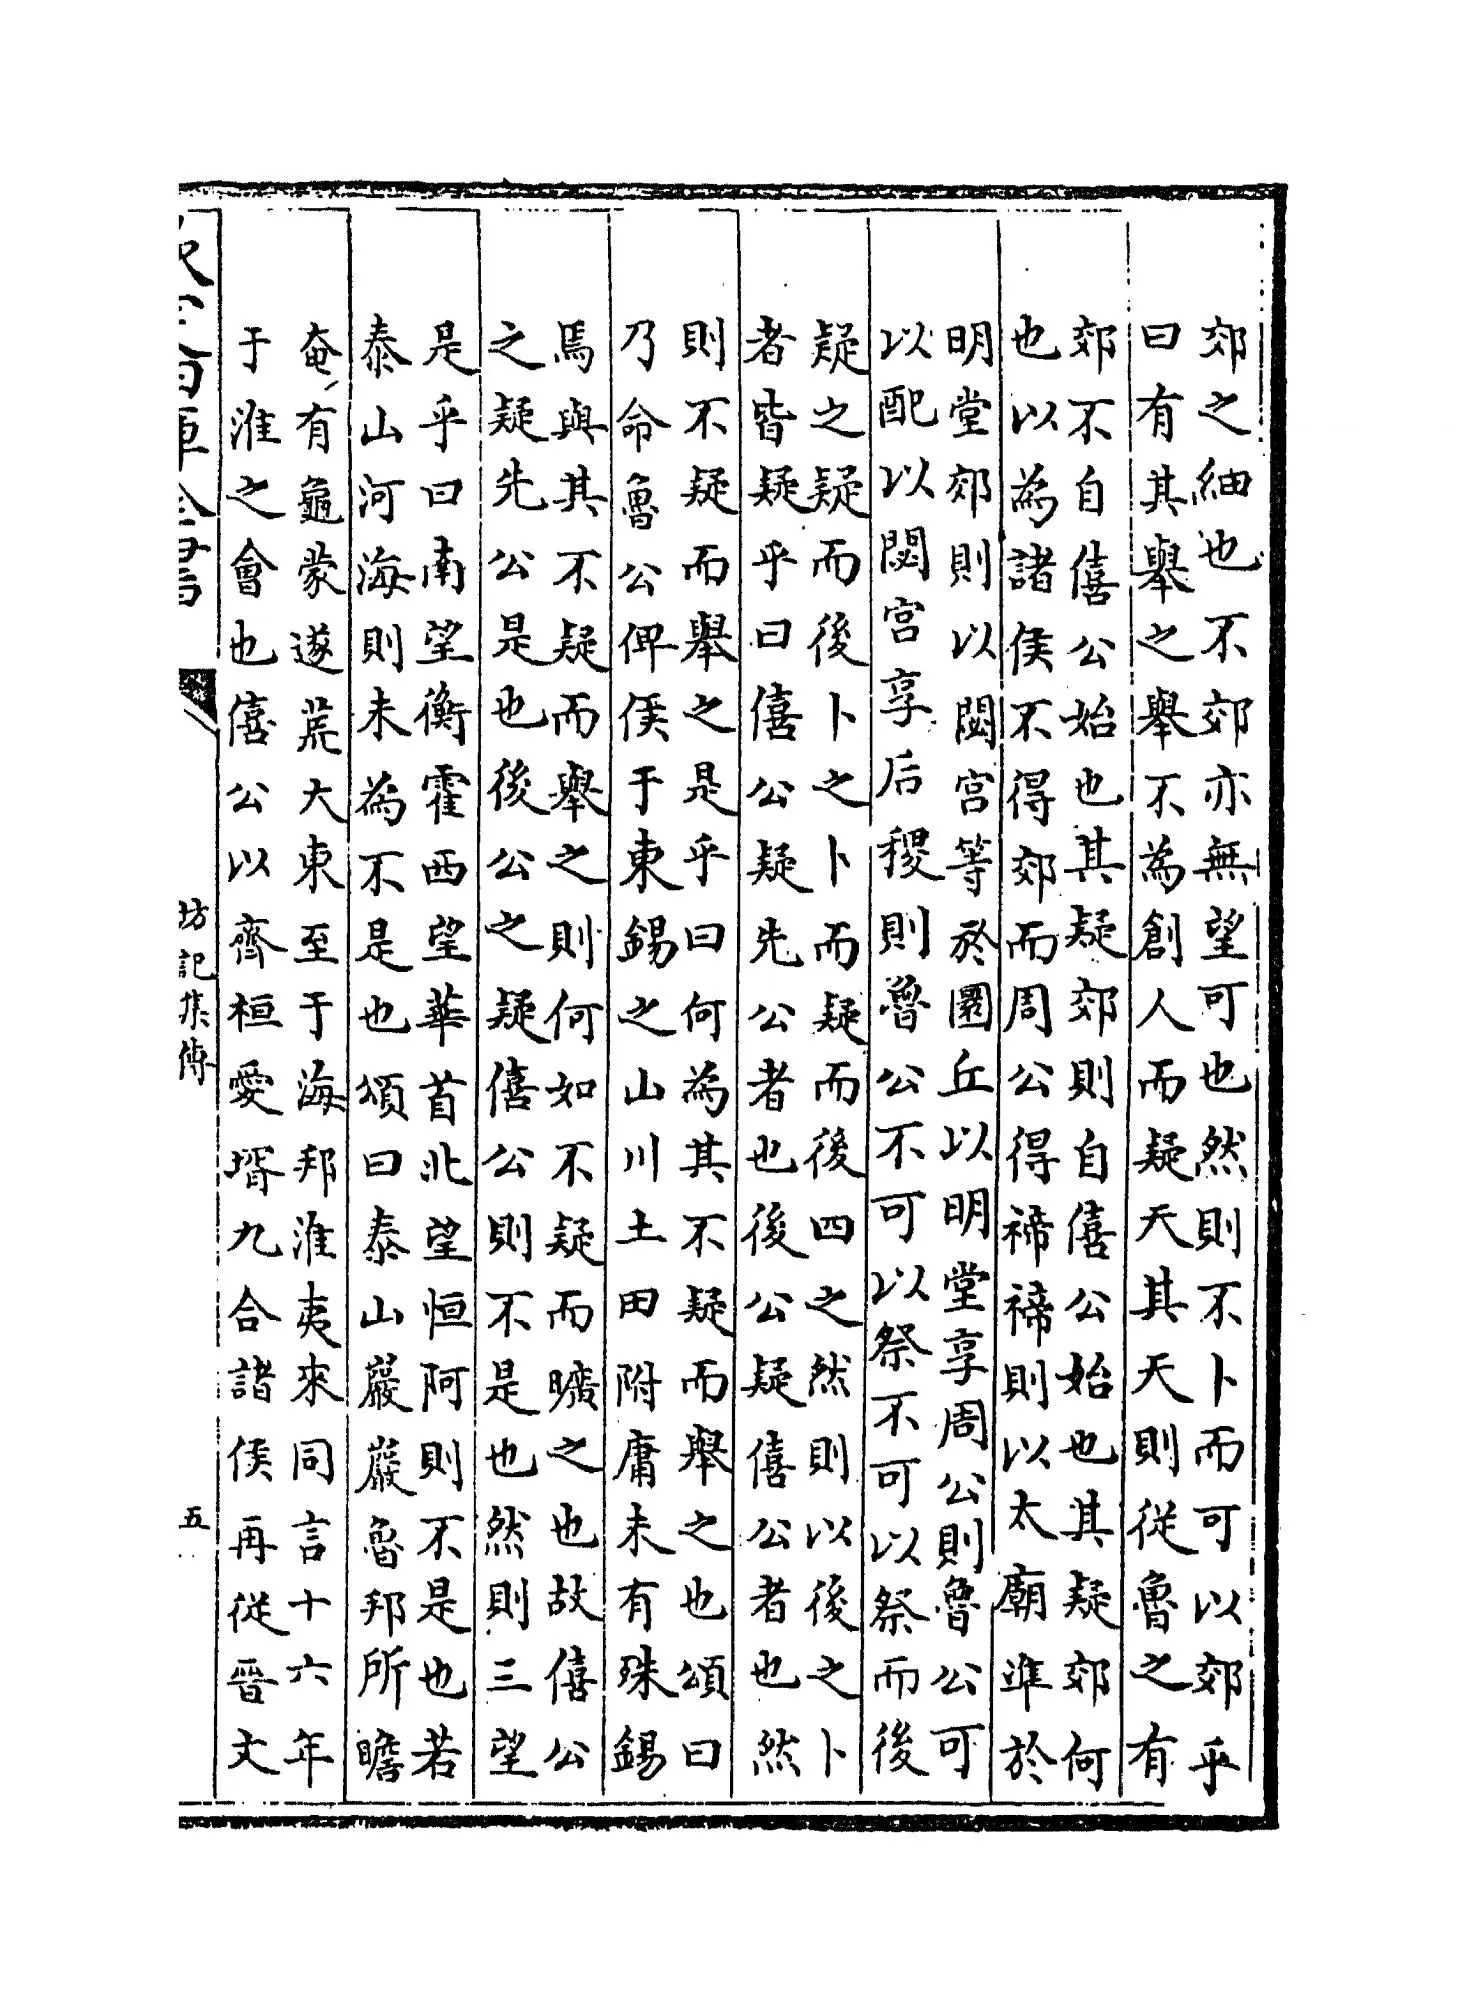 郊之細也不郊亦無望可也然則不卜而可以郊乎
曰有其舉之舉不為創人而疑天其天則從魯之有
郊不自僖公始也其疑郊則自僖公始也其疑郊何
也以為諸侯不得郊而周公得禘禘則以太廟準於
明堂郊則以閟宮等於圜丘以明堂享周公則魯公可
以配以閟宮享后稷則魯公不可以祭不可以祭而後
疑之疑而後卜之卜而疑而後四之然則以後之卜
者皆疑乎曰僖公疑先公者也後公疑僖公者也然
則不疑而舉之是乎曰何為其不疑而舉之也頌曰
乃命魯公俾侯于東錫之山川土田附庸未有殊錫
焉與其不疑而舉之則何如不疑而曠之也故僖公
之疑先公是也後公之疑僖公則不是也然則三望
是乎曰南望衡霍西望華首北望恒阿則不是也若
泰山河海則未為不是也頌曰泰山巖巖魯邦所瞻
奄有龜蒙遂荒大東至于海邦淮夷來同言十六年
于淮之會也僖公以齊桓愛壻九合諸侯再從晉文
坊記集傳
五